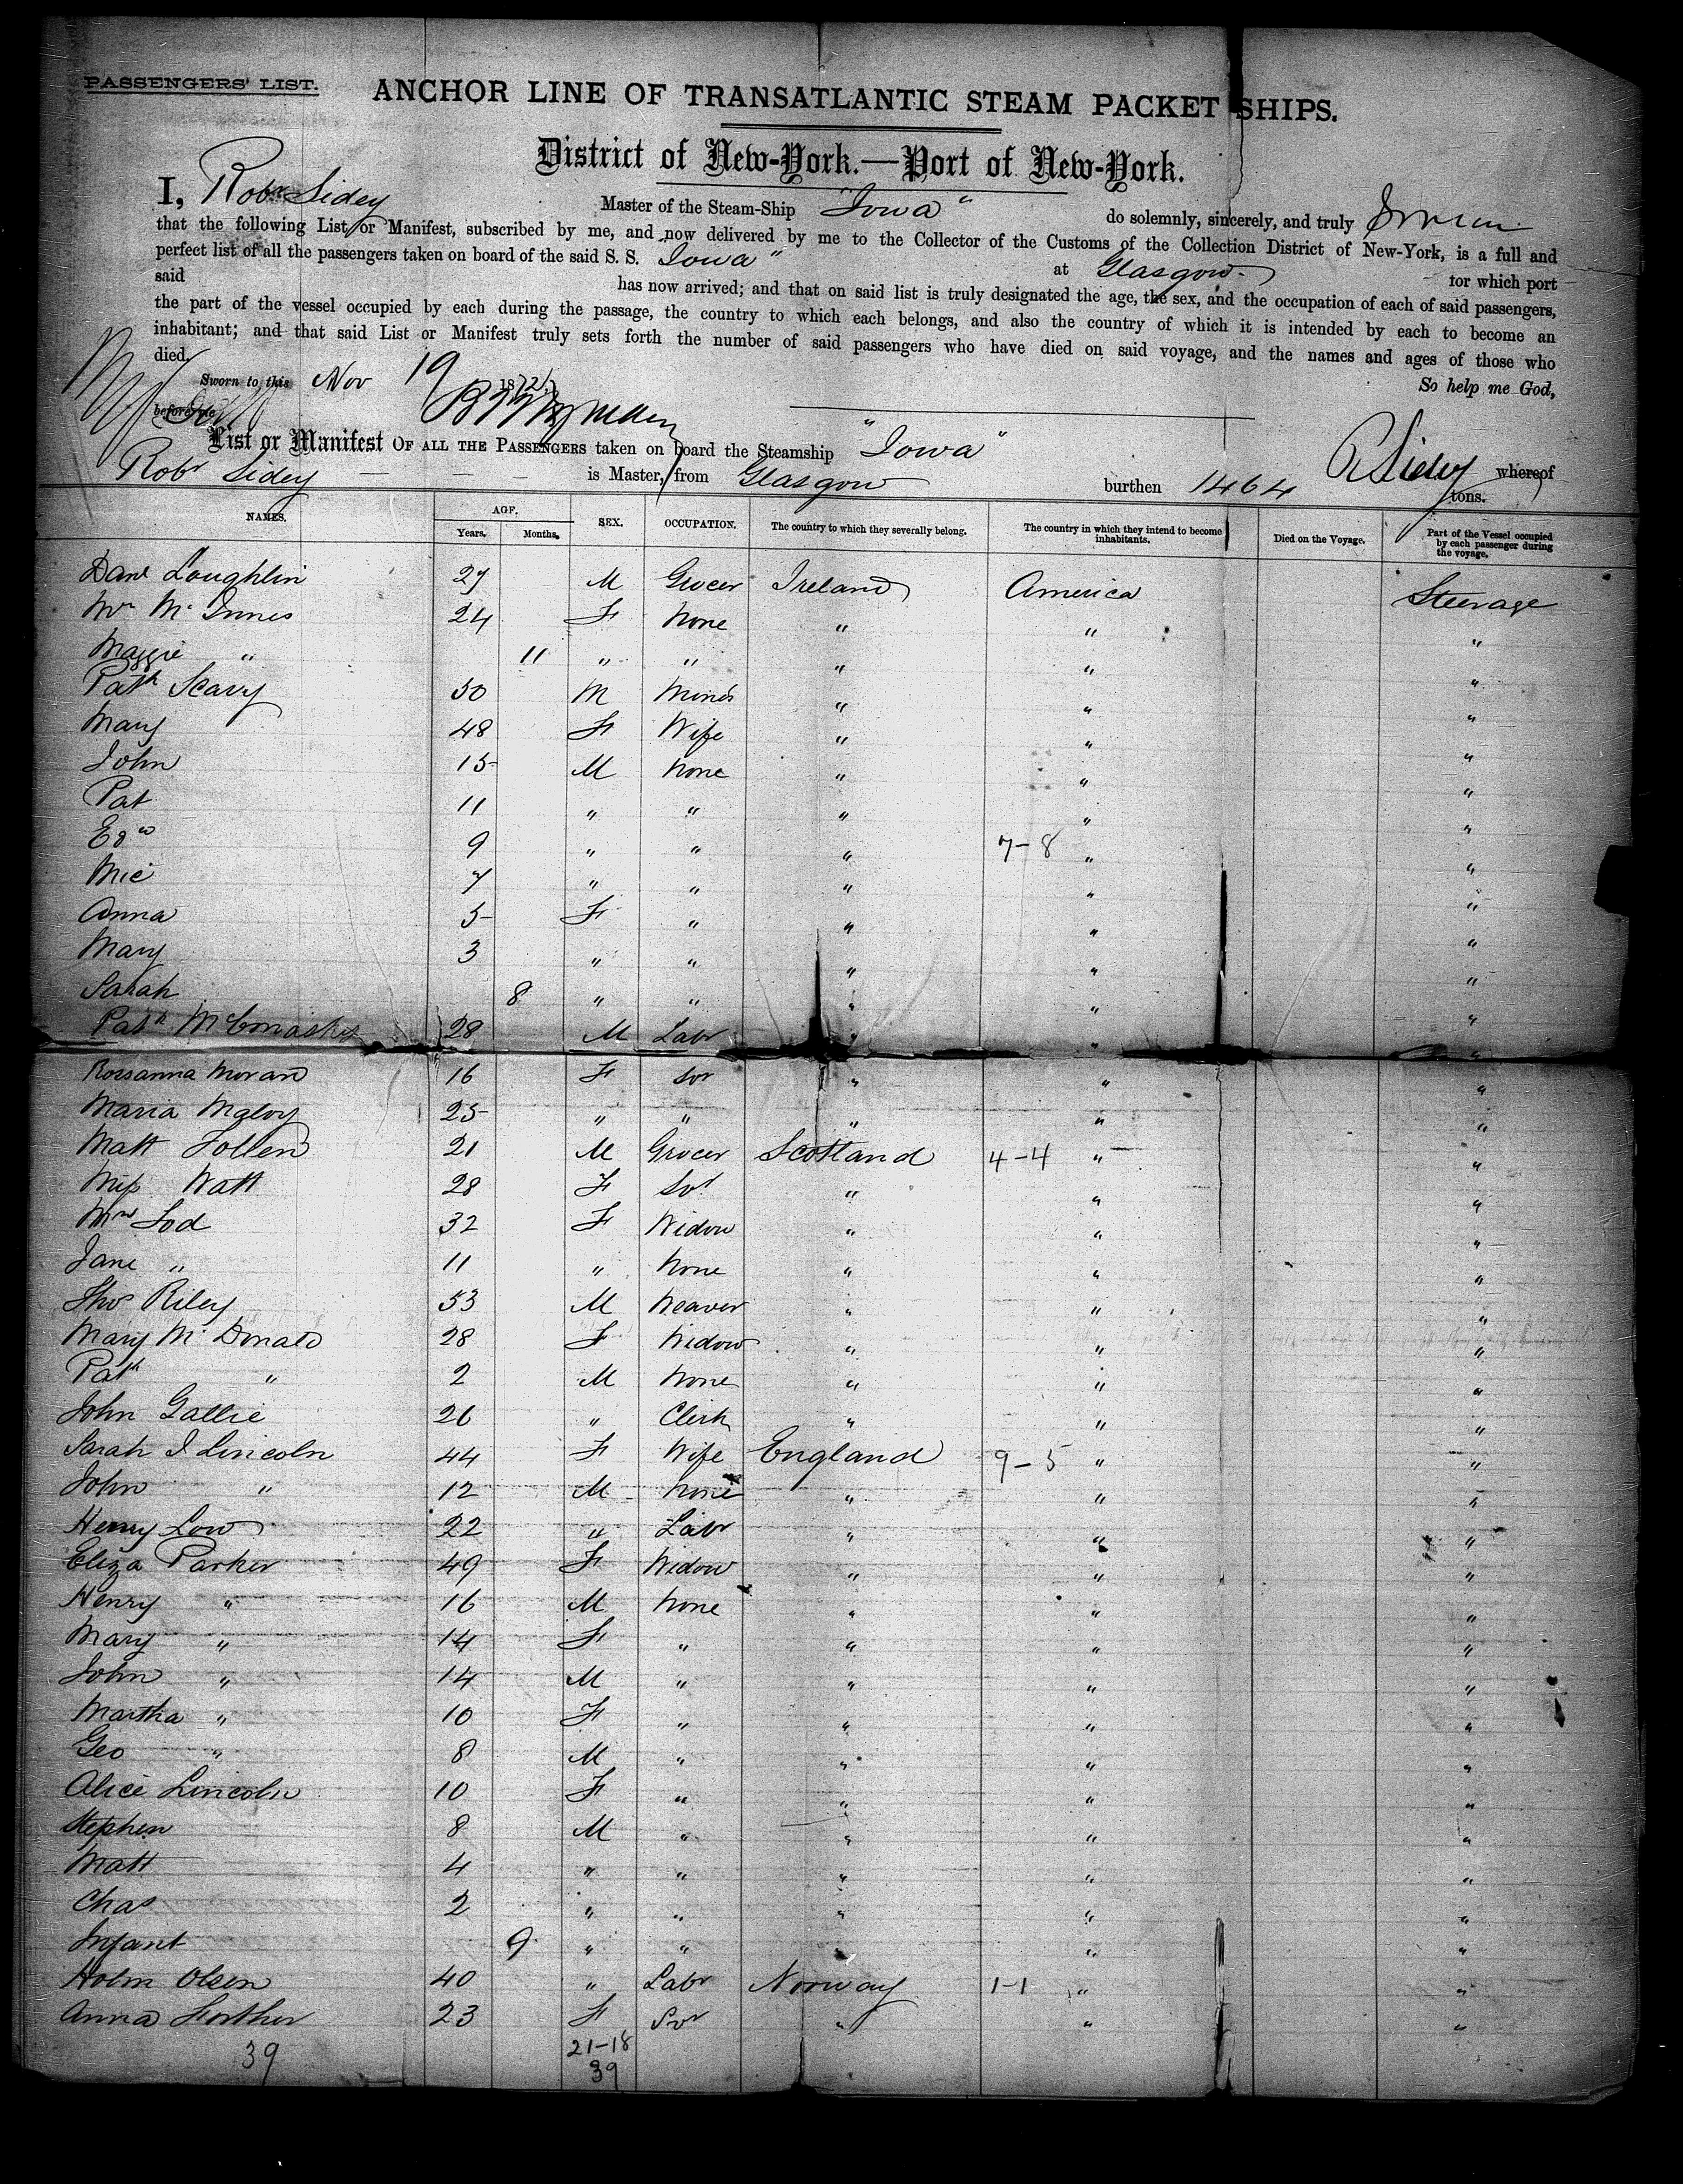 PASSENGERS' LIST.
ANCHOR LINE OF TRANSATLANTIC STEAM PACKET SHIPS.
District of New-York.—Port of New-York.
I, Robr Sidey Master of the Steam-Ship "Iowa" do solemnly, sincerely, and truly
that the following List or Manifest, subscribed by me, and now delivered by me to the Collector of the Customs of the Collection District of New-York, is a full and
perfect list of all the passengers taken on board of the said S. S. "Iowa" at Glasgow for which port
said has now arrived; and that on said list is truly designated the age, the sex, and the occupation of each of said passengers,
the part of the vessel occupied by each during the passage, the country to which each belongs, and also the country of which it is intended by each to become an
inhabitant; and that said List or Manifest truly sets forth the number of said passengers who have died on said voyage, and the names and ages of those who
died.
So help me God,
Sworn to this Nov 19 1872
before me
R Sidey
List or Manifest OF ALL THE PASSENGERS taken on board the Steamship "Iowa" whereof
Robr Sidey is Master, from Glasgow burthen 1464 tons.
NAMES. AGE. Years. Months. SEX. OCCUPATION. The country to which they severally belong. The country in which they intend to become inhabitants. Died on the Voyage. Part of the Vessel occupied by each passenger during the voyage.
Danl Loughlin 27 M Grocer Ireland America Steerage
Mrs McInnes 24 F None " " "
Maggie " 11 " " " " "
Patk Scavy 50 M " " "
Mary 48 F Wife " " "
John 15 M None " " "
Pat 11 " " " " "
Edwd 9 " " " 7-8 " "
Mic 7 " " " " "
Anna 5 F " " " "
Mary 3 " " " " "
Sarah 8 " " " " "
Patk 28 M Labr " " "
Rossanna Moran 16 F Svr " " "
Maria Maloy 25 " " " " "
Matt Follen 21 M Grocer Scotland 4-4 " "
Miss Watt 28 F Svt " " "
Mrs Lod 32 F Widow " " "
Jane " 11 " None " " "
Thos Riley 53 M Weaver " " "
Mary McDonald 28 F Widow " " "
Patk " 2 M None " " "
John Gallie 26 " Clerk " " "
Sarah J Lincoln 44 F Wife England 9-5 " "
John " 12 M None " " "
Henry Low 22 " Labr " " "
Eliza Parker 49 F Widow " " "
Henry " 16 M None " " "
Mary " 14 F " " " "
John " 14 M " " " "
Martha " 10 F " " " "
Geo " 8 M " " " "
Alice Lincoln 10 F " " " "
Stephen 8 M " " " "
Matt 4 " " " " "
Chas 2 " " " " "
Infant 9 " " " " "
Holm Olsen 40 " Labr Norway 1-1 " "
Anna Forther 23 F Svr " " "
39 21-18
39